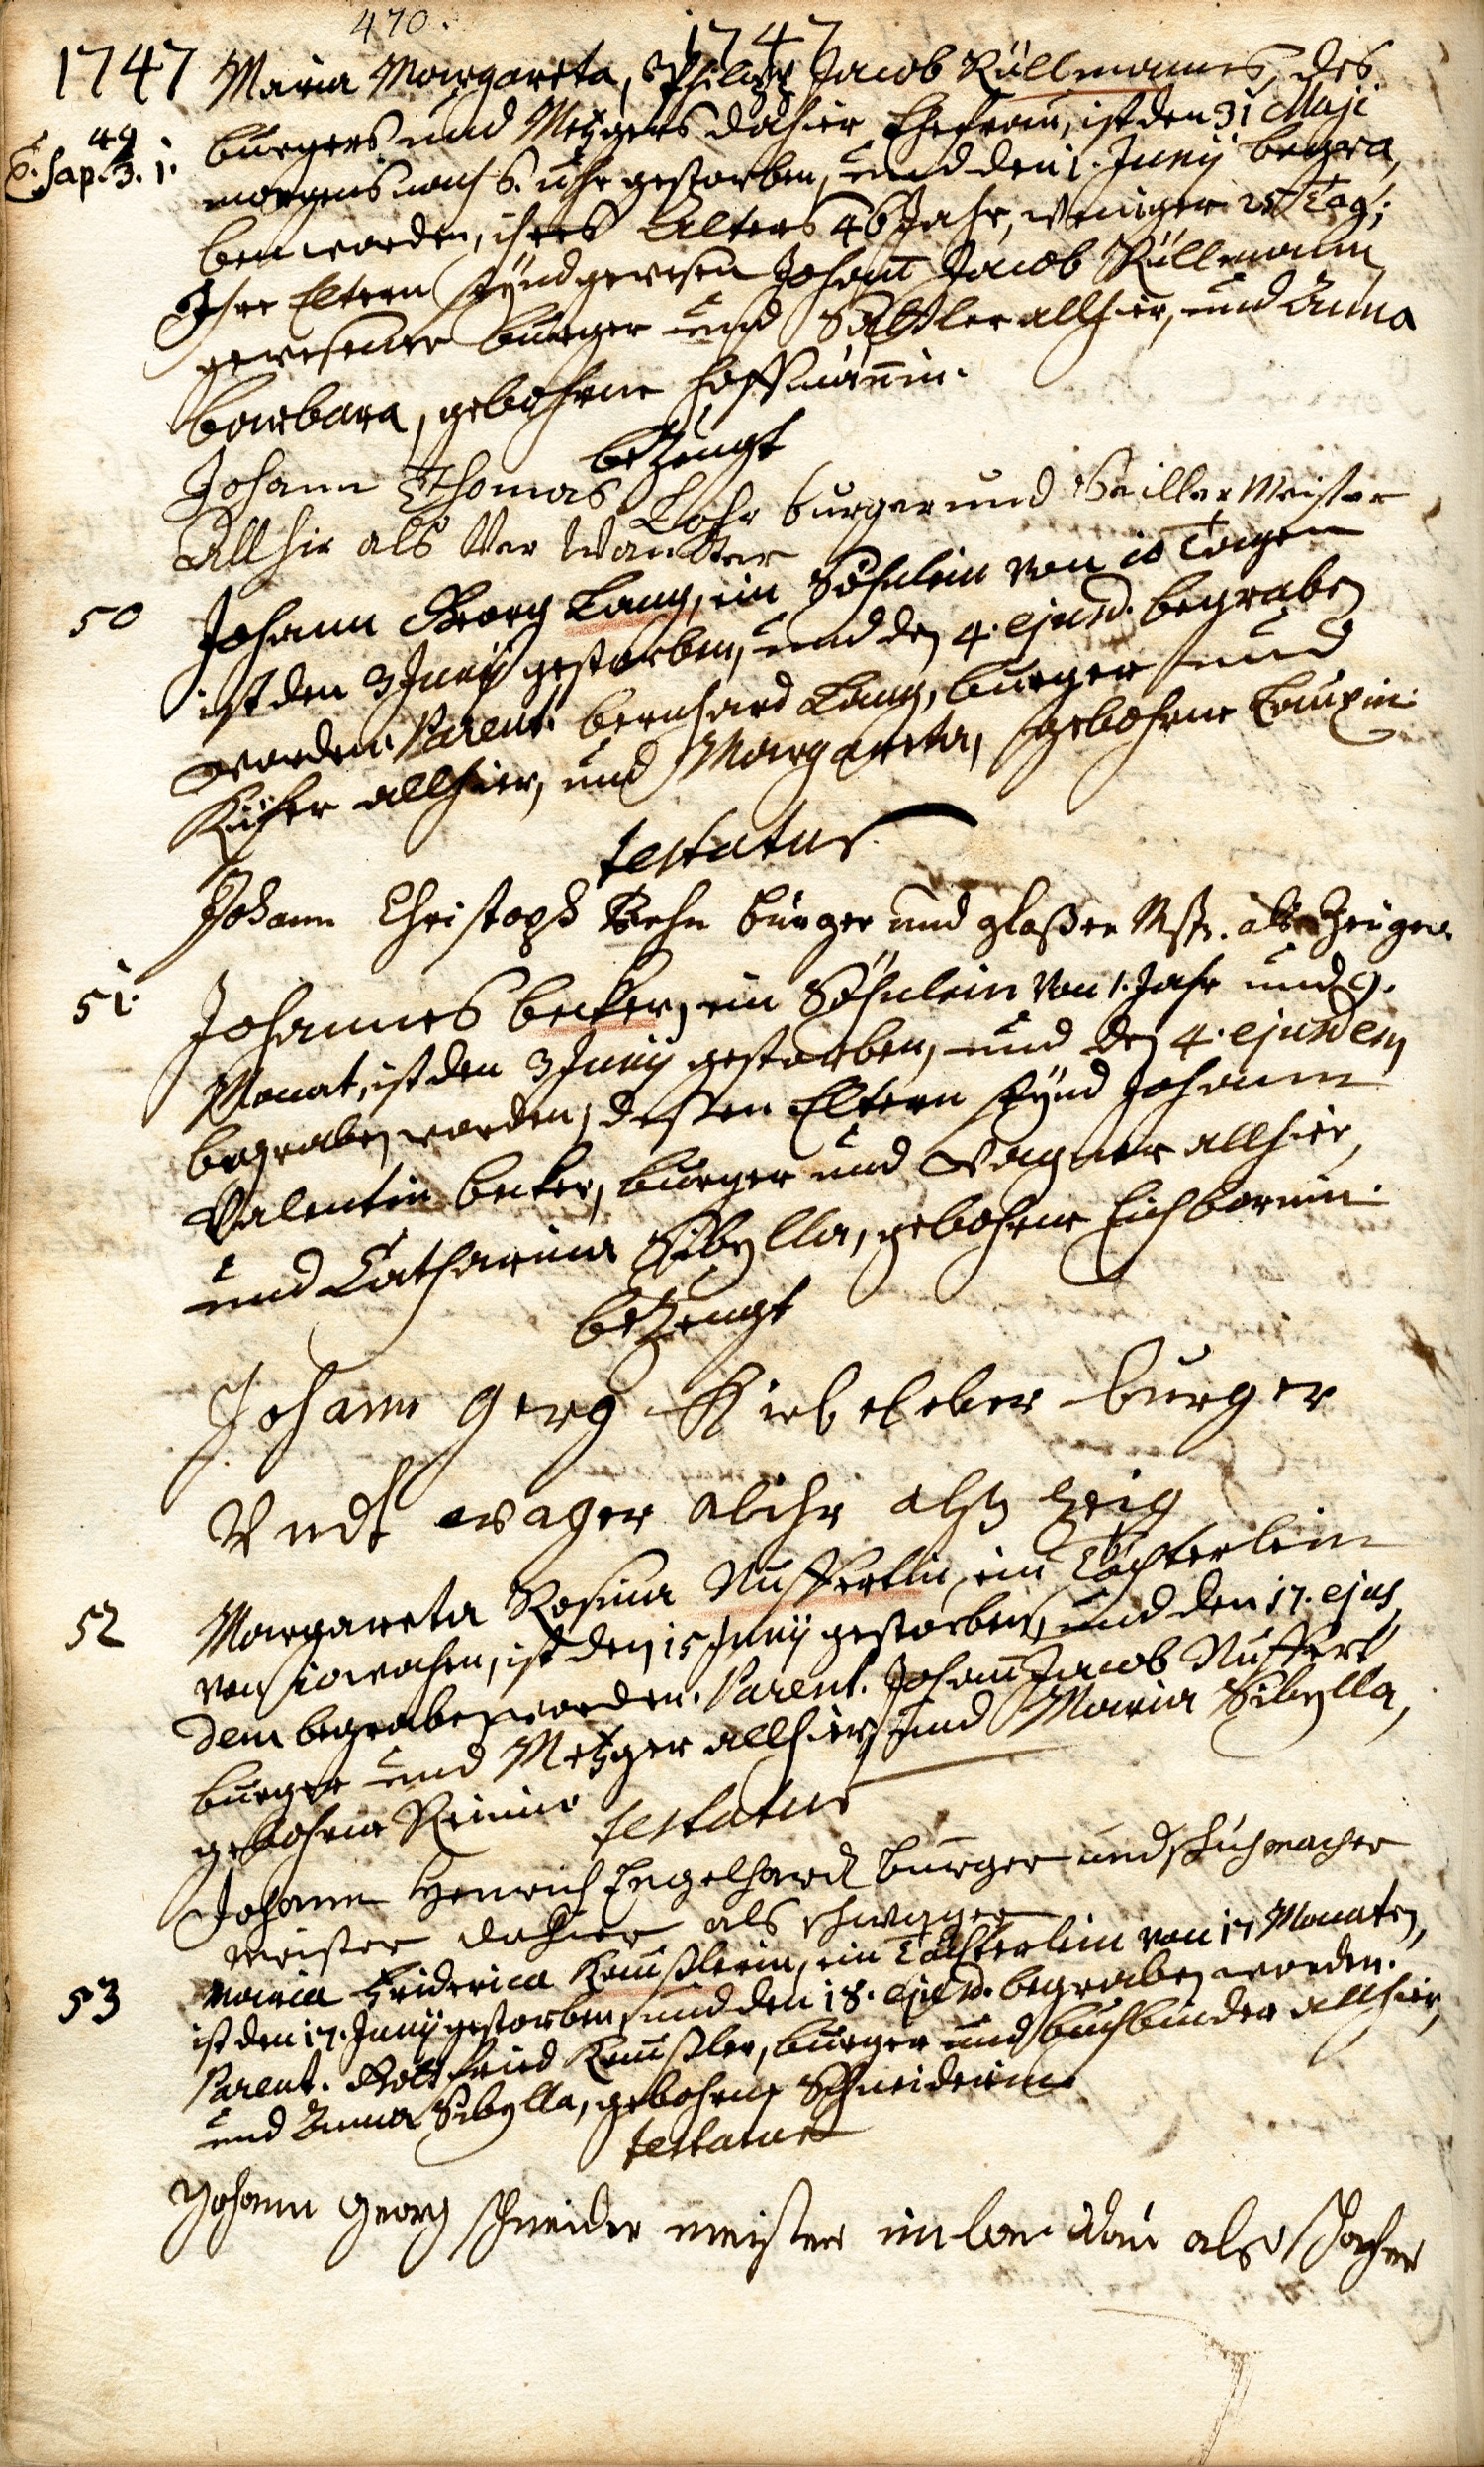 470.
1747
1747 Maria Margareta, Philipp Jacob Küllmanns, des
49
T. Sap. 3. 1.
burgers und Metzgers dahier Ehefrau, ist den 31 Maji
morgens nach 6. uhr gestorben, und den 1. Junij begra,
ben worden, ihres Alters 46 Jahr, weniger 25 Tag;
Ihre Eltern seynd gewesen Johann Jacob Küllmann,
gewesener burger und Sattler allhier, und Anna
barbara, gebohrne Hoffmännin.
bezeugt
Johann Thomas Lohr burger und Seiller Meister
Allhir als Ver Wandter
50 Johann Georg Lang, ein Söhnlein von 10 Tagen
ist den 3 Junij gestorben, und den 4. ejusd. begraben
worden. Parent. bernhard Lang, burger und
Küfer allhier, und Margareta, gebohrne
testatur
Johann Christoph burger und glaßer Mstr. als Zeuge.
51. Johannes becker, ein Söhnlein von 1. Jahr und 9.
Monat, ist den 3 Junij gestorben, und den 4. ejusdem
begraben worden, deßen Eltern seynd Johann
Valentin becker, burger und Wagner allhier,
und Catharina Sibylla, gebohrne Eichbornin.
bezeugt
Johann Gerg burger
Vndt wager alihr alß zeig
52 Margareta Rosina Nussertin, ein Töchterlein
von 10 wochen, ist den 15 Junij gestorben, und den 17. ejus,
dem begraben worden. Parent. Johann Jacob Nussert
burger und Metzger allhier, und Maria Sibylla,
gebohrne
testatur
Johann Henrich Engelhard burger und schuhmacher
meister dahier als schwager
53 Maria Friderica Kaußlerin, ein Töchterlein von 17 Monaten,
ist den 17. Junij gestorben, und den 18. ejusd. begraben worden.
Parent. Gottfried Kaußler, burger und buchbinder allhier,
und Anna Sibylla, gebohrne Schneiderin.
testatur
Johann Georg schneider meister in landau als